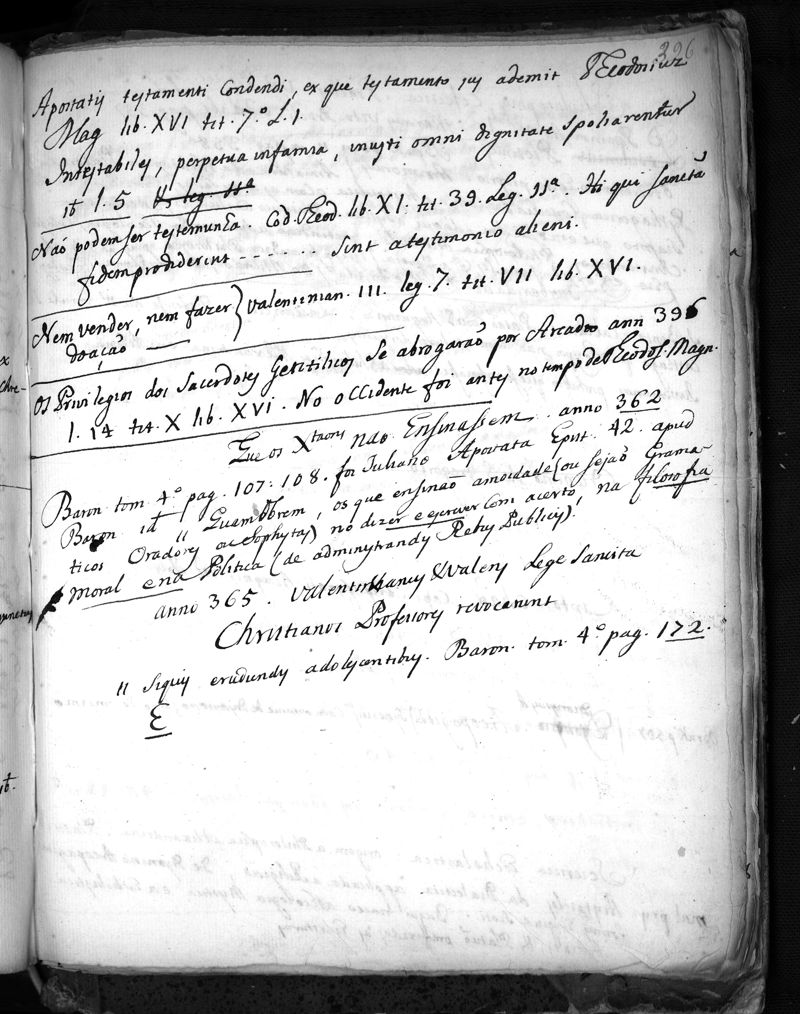 396
Apostatis testamenti Condendi, ex que testamento jus ademit Teodosius
Mag lib. XVI tit. 7.º L. 1.
Intestabiles, perpetua infamia, inusti omni dignitate spoliarentur
ib l. 5 Is leg. 11ª
Naõ podem ser testemunha. Cod. Teod. lib. XI. tit. 39. Leg. 11ª. Hi qui sanctã
fidem prodiderint - - - - - - - sint a testimonio alieni.
Nem vender, nem fazer } Valentinian. III. leg. 7. tit. VII lib. XVI.
doação
Os Privilegios dos Sacerdotes Gentilicos se abrogaraõ por Arcadio ann 396
l. 14 tit. X lib. XVI. No occidente foi antes no tempo de Teodos. Magn.
Que os Xtaons naõ Ensinassem. anno 362
Baron tom. 4º pag. 107: 108. foi Juliano Apostata Epist. 42. apud
Baron id " Quamobrem, os que ensinaõ amocidade (ou sejaõ Grama-
ticos Oradores ou Sophytas) no dizer e escrever com acerto, na filosofia
moral e na Politica (de administrandis Rebus Publicis).
anno 365. Valentinianus & Valens Lege Sancita
Christianos Professores revocarunt
" siquis erudundis adolescentibus. Baron. tom. 4º pag. 172.
E